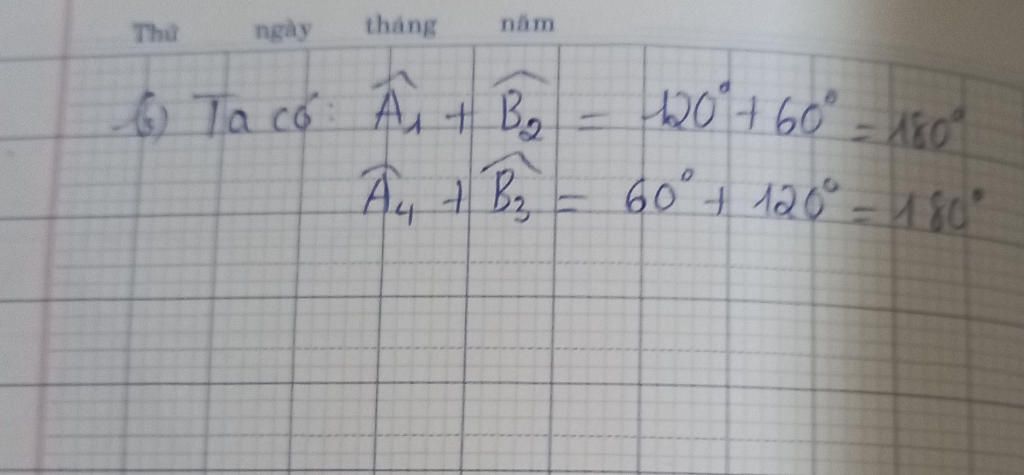 Thứ ngày tháng năm
b) Ta có: Â₁ + B̂₂ = 120° + 60° = 180°
Â₄ + B̂₃ = 60° + 120° = 180°